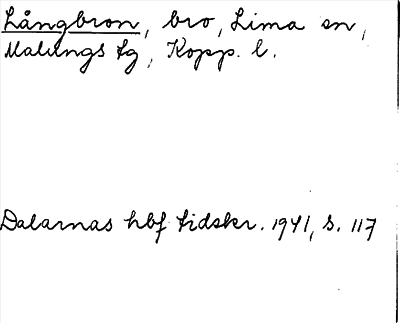 Långbron, bro, Lima sn,
Malungs tg, Kopp. l.
Dalarnas hbf tidskr. 1941, s. 117